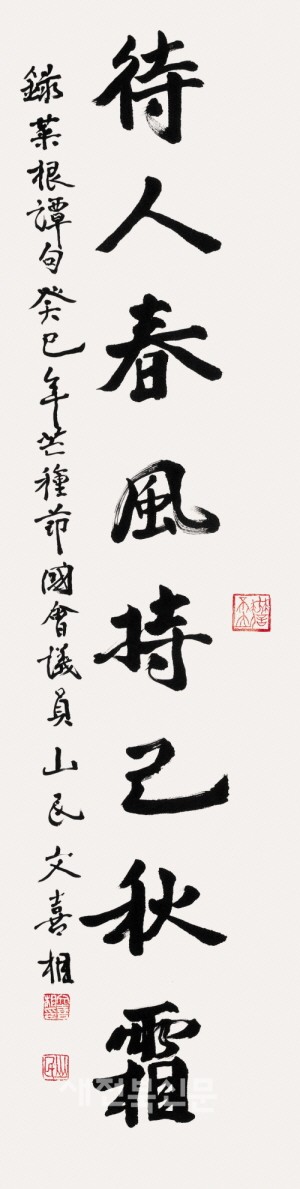 待人春風持己秋霜
錄菜根譚句癸巳年芒種節國會議員山民文喜相
새전북신문